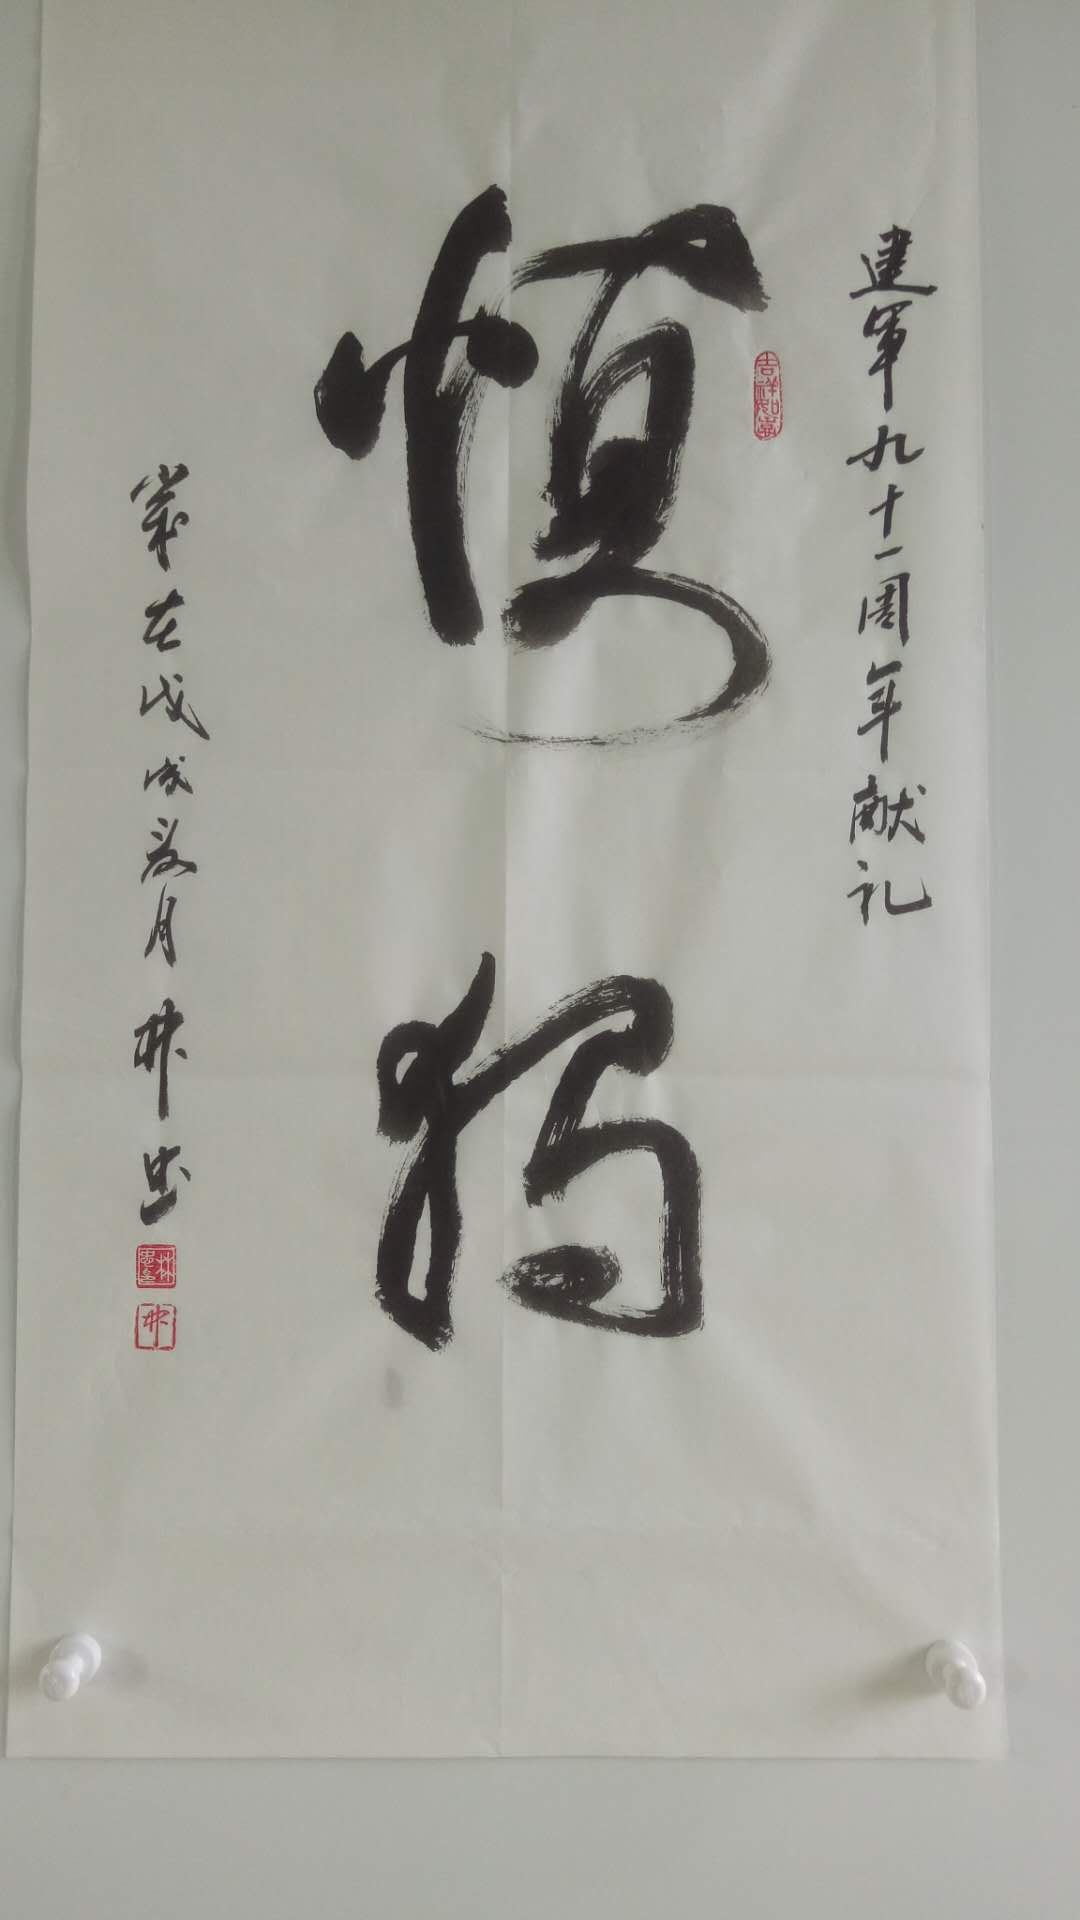 建军九十一周年献礼
吉祥如意
慎独
岁在戊戌荷月林忠